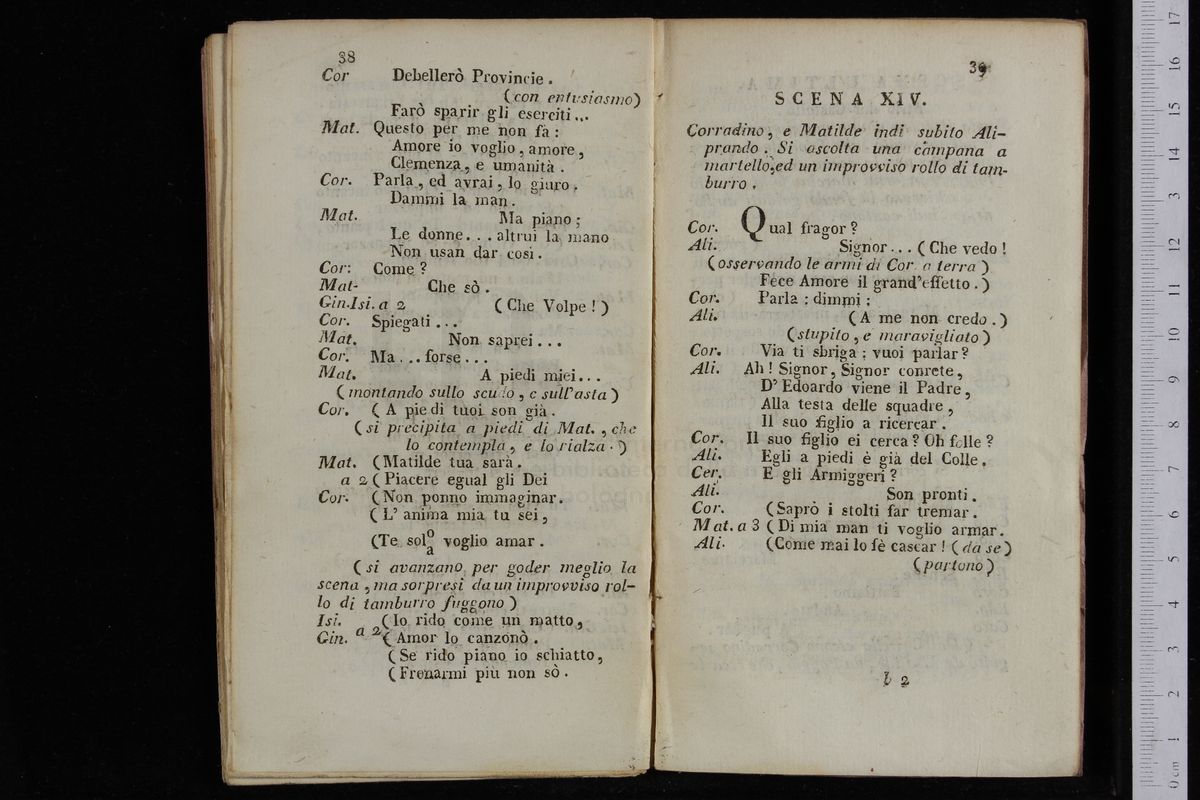 38
Cor Debellerò Provincie .
(con entusiasmo)
Farò sparir gli eserciti ...
Mat. Questo per me non fa :
Amore io voglio , amore ,
Clemenza , e umanità .
Cor. Parla , ed avrai , lo giuro .
Dammi la man .
Mat. Ma piano ;
Le donne . . . altrui la mano
Non usan dar così .
Cor: Come ?
Mat- Che sò .
Gin.Isi. a 2 ( Che Volpe ! )
Cor. Spiegati . . .
Mat. Non saprei . . .
Cor. Ma . . . forse . . .
Mat. A piedi miei . . .
( montando sullo scudo , e sull'asta )
Cor. ( A piedi tuoi son già .
( si precipita a piedi di Mat. , che
lo contempla , e lo rialza . )
Mat. (Matilde tua sarà .
a 2 ( Piacere egual gli Dei
Cor. (Non ponno immaginar .
( L' anima mia tu sei ,
(Te sol o/a voglio amar .
( si avanzano per goder meglio la
scena , ma sorpresi da un improvviso rol-
lo di tamburro fuggono )
Isi. (Io rido come un matto ,
Gin. a 2 ( Amor lo canzonò .
( Se rido piano io schiatto ,
( Frenarmi più non sò .
39
SCENA XIV.
Corradino , e Matilde indi subito Ali-
prando . Si ascolta una campana a
martello , ed un improvviso rollo di tam-
burro .
Cor. Qual fragor ?
Ali. Signor . . . ( Che vedo !
( osservando le armi di Cor. a terra )
Fece Amore il grand'effetto . )
Cor. Parla : dimmi :
Ali. ( A me non credo . )
( stupito , e maravigliato )
Cor. Via ti sbriga ; vuoi parlar ?
Ali. Ah ! Signor , Signor conrete ,
D' Edoardo viene il Padre ,
Alla testa delle squadre ,
Il suo figlio a ricercar .
Cor. Il suo figlio ei cerca ? Oh folle ?
Ali. Egli a piedi è già del Colle .
Cer. E gli Armiggeri ?
Ali. Son pronti .
Cor. (Saprò i stolti far tremar .
Mat. a 3 ( Di mia man ti voglio armar .
Ali. (Come mai lo fè cascar ! ( da se )
( partono )
b 2
17
16
15
14
13
12
11
10
9
8
7
6
5
4
3
2
1
0 cm